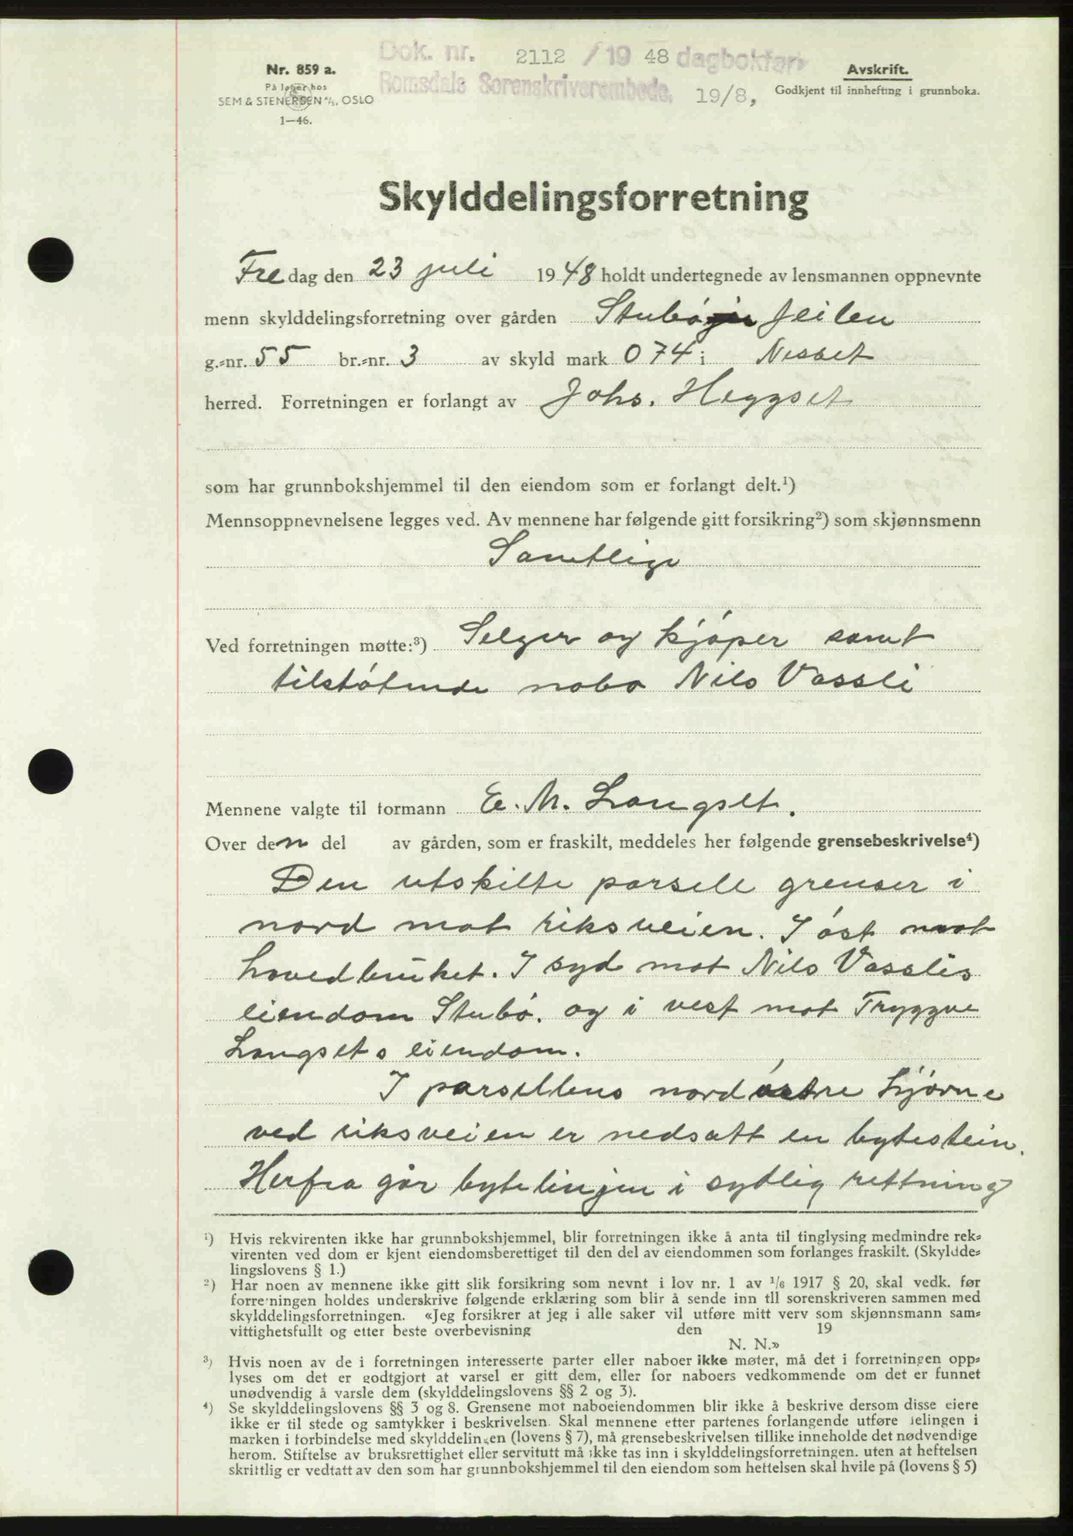 Dok. nr. 2112 / 19 48 dagbokført
Romsdals Sorenskriverembede, 19/8,
Nr. 859 a.
På lager hos
SEM & STENERSEN A/S, OSLO
1—46.
Avskrift.
Godkjent til innhefting i grunnboka.
Skylddelingsforretning
Fredag den 23 juli 1948 holdt undertegnede av lensmannen oppnevnte
menn skylddelingsforretning over gården Stubø Jeilen
g.-nr. 55 br.-nr. 3 av skyld mark 074 i Nesset
herred. Forretningen er forlangt av Johs. Heggset
som har grunnbokshjemmel til den eiendom som er forlangt delt.¹)
Mennsoppnevnelsene legges ved. Av mennene har følgende gitt forsikring²) som skjønnsmenn
Samtlige
Ved forretningen møtte:³) Selger og kjøper samt
tilstøtende nabo Nils Vassli
Mennene valgte til formann E. M. Langset.
Over den del av gården, som er fraskilt, meddeles her følgende grensebeskrivelse⁴)
Den utskilte parsell grenser i
nord mot riksveien. I øst mot
hovedbruket. I syd mot Nils Vasslis
eiendom Stubø. og i vest mot Tryggve
Langsets eiendom.
I parsellens nordøstre hjørne
ved riksveien er nedsatt en bytestein.
Herfra går bytelinjen i sydlig rettning
¹) Hvis rekvirenten ikke har grunnbokshjemmel, blir forretningen ikke å anta til tinglysing medmindre rek-
virenten ved dom er kjent eiendomsberettiget til den del av eiendommen som forlanges fraskilt. (Skyldde-
lingslovens § 1.)
²) Har noen av mennene ikke gitt slik forsikring som nevnt i lov nr. 1 av 1/6 1917 § 20, skal vedk. før
forretningen holdes underskrive følgende erklæring som blir å sende inn til sorenskriveren sammen med
skylddelingsforretningen. «Jeg forsikrer at jeg i alle saker vil utføre mitt verv som skjønnsmann sam-
vittighetsfullt og etter beste overbevisning den 19
N. N.»
³) Hvis noen av de i forretningen interesserte parter eller naboer ikke møter, må det i forretningen opp-
lyses om det er godtgjort at varsel er gitt dem, eller for naboers vedkommende om det er funnet
unødvendig å varsle dem (skylddelingslovens §§ 2 og 3).
⁴) Se skylddelingslovens §§ 3 og 8. Grensene mot naboeiendommen blir ikke å beskrive dersom disse eiere
ikke er til stede og samtykker i beskrivelsen. Skal mennene etter partenes forlangende utføre delingen i
marken i forbindelse med skylddelingen (lovens § 7), må grensebeskrivelsen tillike inneholde det nødvendige
herom. Stiftelse av bruksrettighet eller servitutt må ikke tas inn i skylddelingsforretningen, uten at heftelsen
skriftlig er vedtatt av den som har grunnbokshjemmel til den eiendom som heftelsen skal hvile på (lovens § 5)